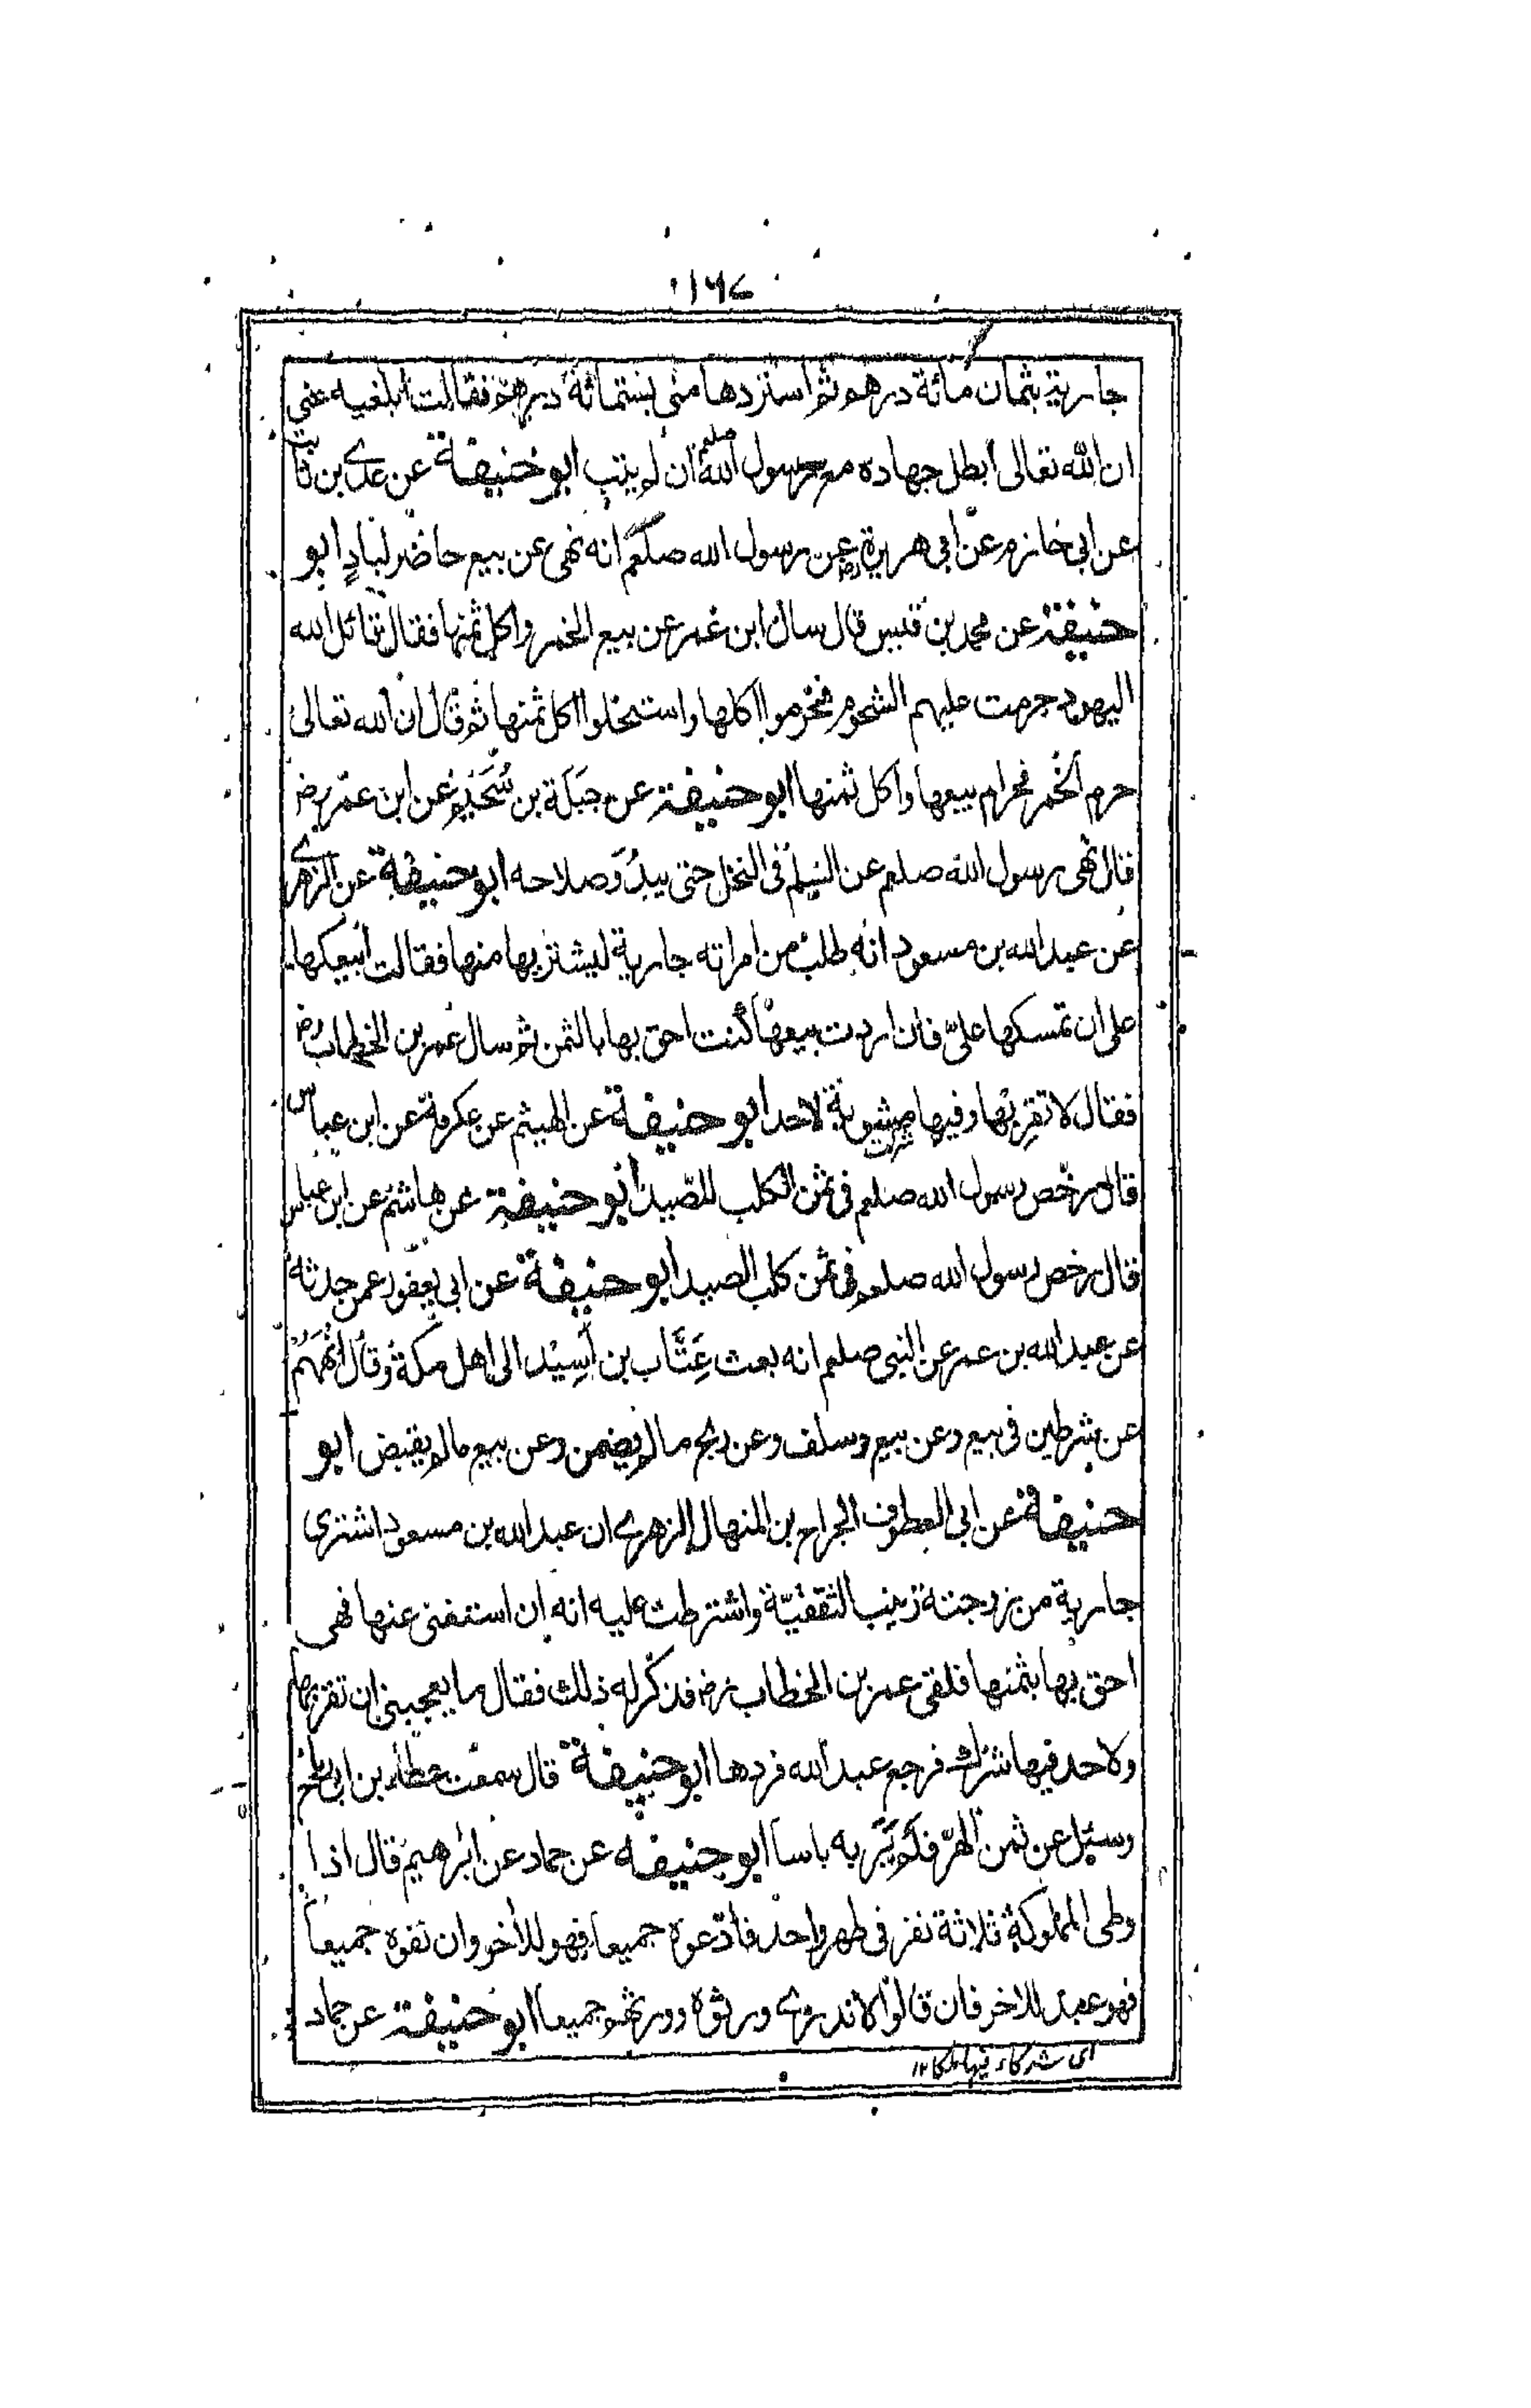 ١٦٧
جارية بثمان مائة درهم ثم استردها مني بستمائة درهم فقالت ابلغيه عني
ان الله تعالى ابطل جهاده مع رسول الله صلعم ان لم يتب ابو حنيفة عن عدي بن ثابت
عن ابي حازم عن ابي هريرة رض عن رسول الله صلعم انه نهى عن بيع حاضر لبادٍ ابو
حنيفة عن محمد بن قيس قال سال ابن عمر عن بيع الخمر واكل ثمنها فقال قاتل الله
اليهود حرمت عليهم الشحوم فحرموا اكلها واستحلوا اكل ثمنها ثم قال ان الله تعالى
حرم الخمر فحرام بيعها واكل ثمنها ابو حنيفة عن جَبَلَة بن سُحَيْم عن ابن عمر رض
قال نهى رسول الله صلعم عن السلم في النخل حتى يبدُوَ صلاحه ابو حنيفة عن الزهري
عن عبد الله بن مسعود انه طلب من امراته جارية ليشتريها منها فقالت ابيعكها
على ان تمسكها عليّ فان اردت بيعها كنت احق بها بالثمن ثم سال عمر بن الخطاب رض
فقال لا تقربها وفيها مثنوية لاحد ابو حنيفة عن الهيثم عن عكرمة عن ابن عباس
شرك
قال رخص رسول الله صلعم في ثمن الكلب للصيد ابو حنيفة عن هاشم عن ابن عباس
قال رخص رسول الله صلعم في ثمن كلب الصيد ابو حنيفة عن ابي يعفور عمن حدثه
عن عبد الله بن عمر عن النبي صلعم انه بعث عَتَّاب بن اَسِيْد الى اهل مكة وقال انْهَهُمْ
عن شرطين في بيع وعن بيع وسلف وعن ربح مالم يضمن وعن بيع مالم يقبض ابو
حنيفة عن ابي العطوف الجراح بن المنهال الزهري ان عبد الله بن مسعود اشترى
جارية من زوجته زينب الثقفيّة واشترطت عليه انه ان استغنى عنها فهي
احق بها بثمنها فلقي عمر بن الخطاب رض فذكر له ذلك فقال ما يعجبني ان تقربها
ولاحد فيها شرك فرجع عبد الله فردها ابو حنيفة قال سمعت عطاء بن ابي رباح
وسئل عن ثمن الهرّ فلم يَرَ به باسا ابو حنيفه عن حماد عن ابرهيم قال اذا
وطى المملوكة ثلاثة نفر في طهر واحد فادّعوه جميعا فهو للاخر وان نفوه جميعاً
فهو عبد للاخر فان قالوا لاندري ورثوه وورثهم جميعا ابو حنيفة عن حماد
اي شركاء فيها ملكا ١٢